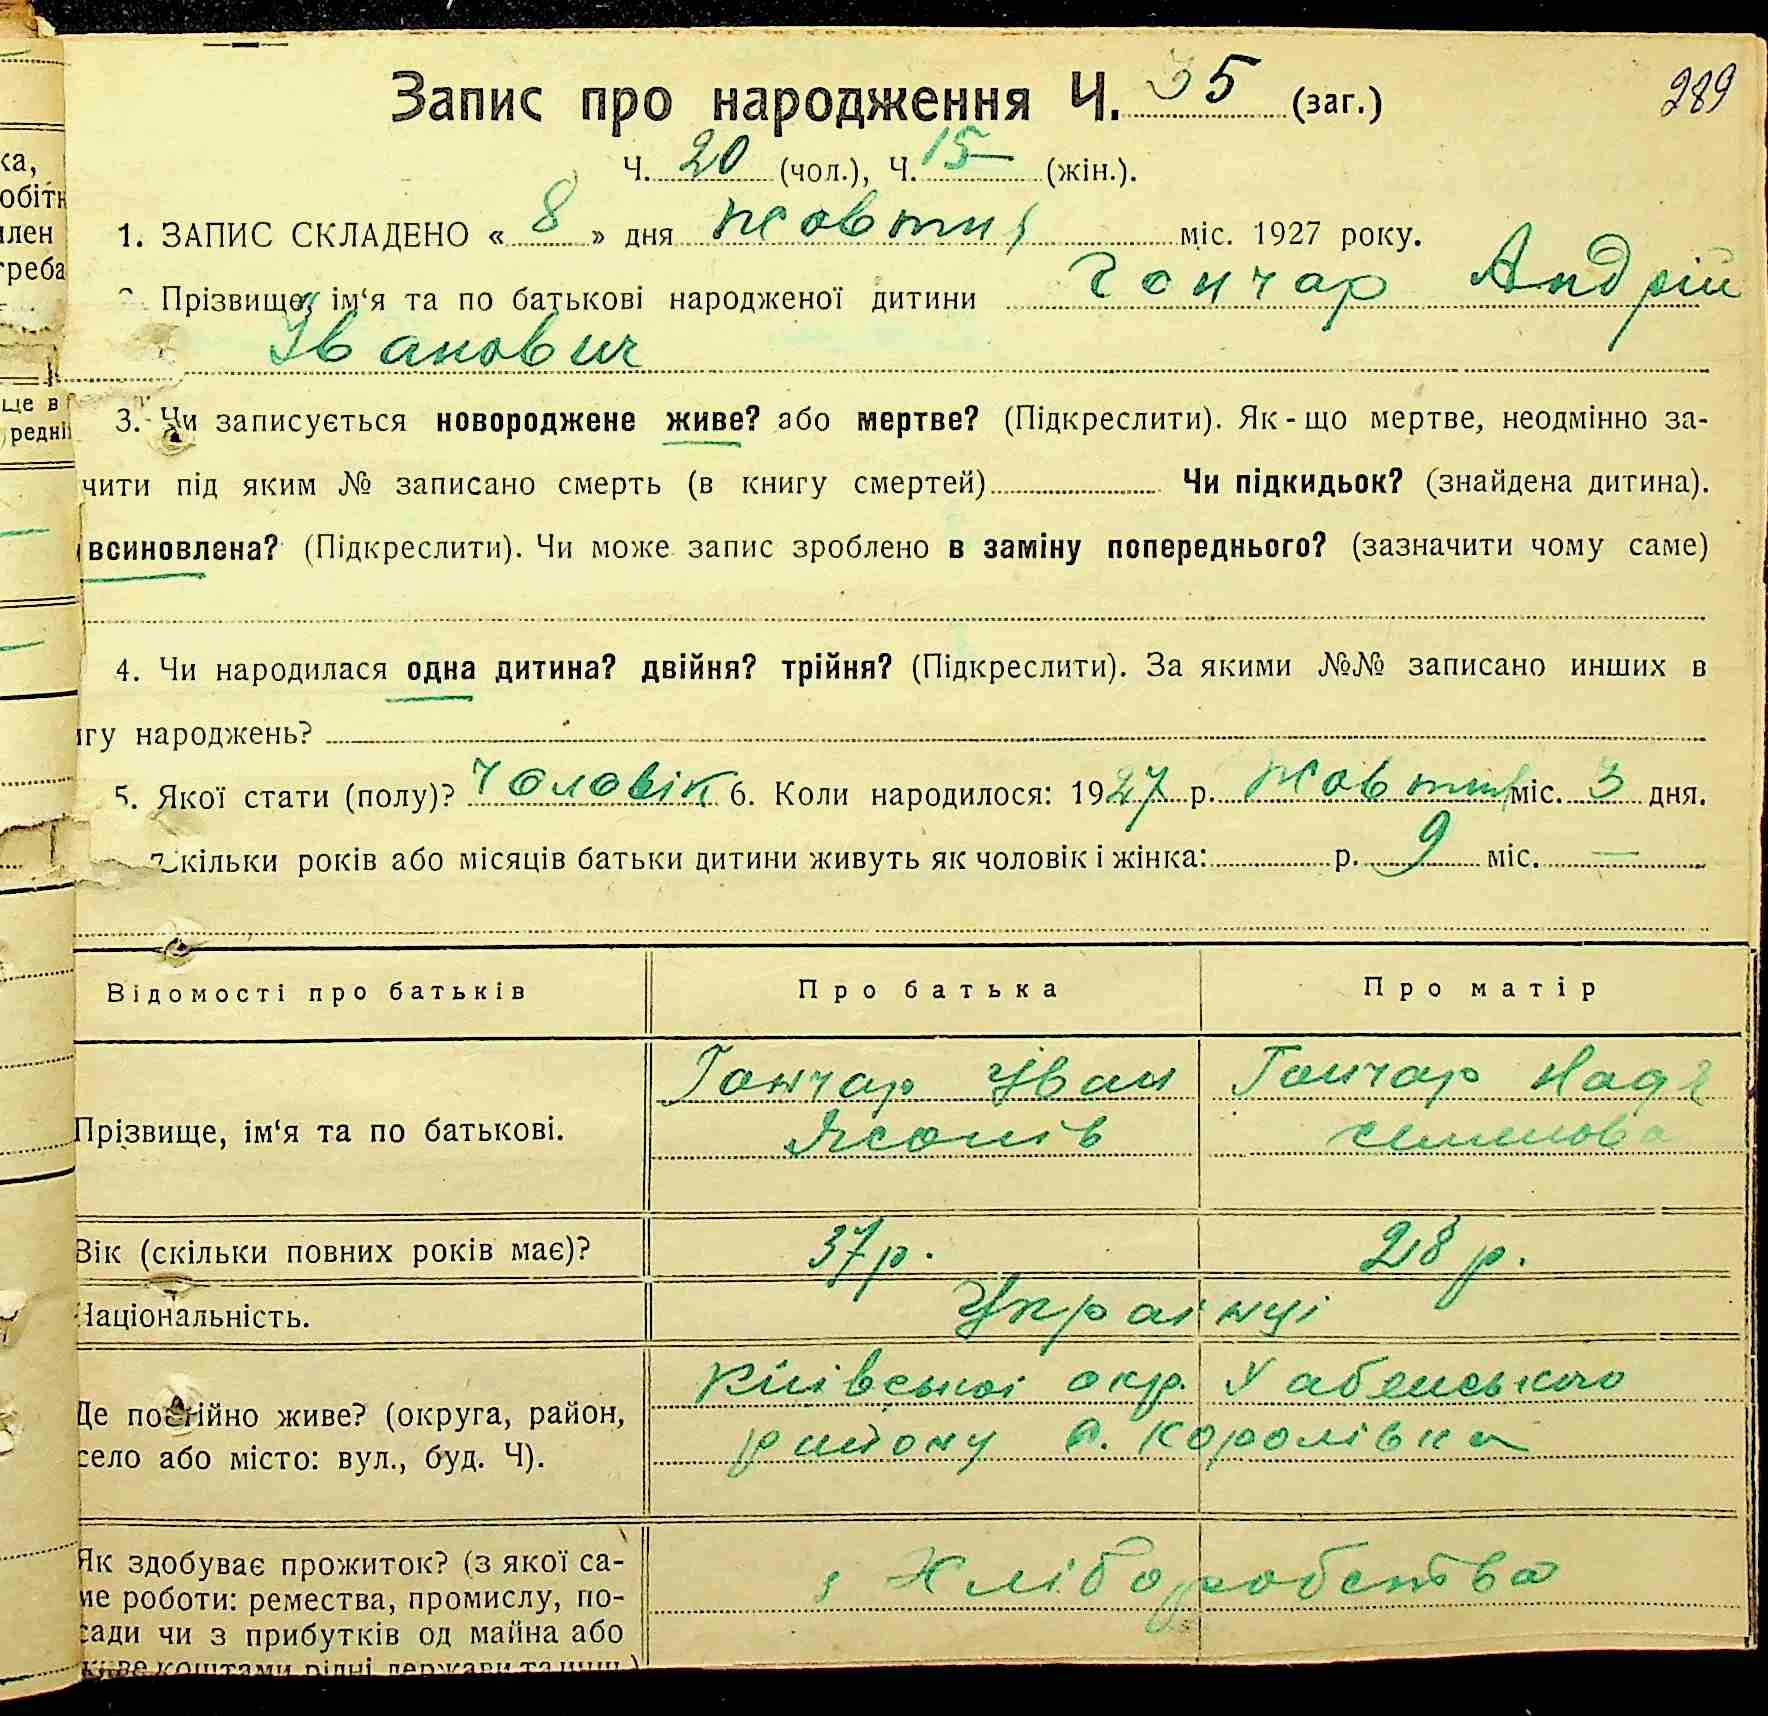 289
Запис про народження Ч. 35 (заг.)
Ч. 20 (чол.), Ч. 15 (жін.).
1. ЗАПИС СКЛАДЕНО « 8 » дня жовтня міс. 1927 року.
Прізвище, ім‘я та по батькові народженої дитини Гончар Андрій
Іванович
3. Чи записується новороджене живе? або мертве? (Підкреслити). Як-що мертве, неодмінно за-
чити під яким № записано смерть (в книгу смертей) Чи підкидьок? (знайдена дитина).
всиновлена? (Підкреслити). Чи може запис зроблено в заміну попереднього? (зазначити чому саме)
4. Чи народилася одна дитина? двійня? трійня? (Підкреслити). За якими №№ записано инших в
гу народжень?
5. Якої стати (полу)? Чоловік 6. Коли народилося: 1927 р. жовтня міс. 3 дня.
Скільки років або місяців батьки дитини живуть як чоловік і жінка: р. 9 міс. —
Відомості про батьків Про батька Про матір
Гончар Іван Гончар Надя
Прізвище, ім‘я та по батькові.
Вік (скільки повних років має)? 37 р. 28 р.
Національність. Українці
Київської окр. Хабенського
Де постійно живе? (округа, район,
району с. Королівка
село або місто: вул., буд. Ч).
Як здобуває прожиток? (з якої са-
з Хліборобства
ме роботи: ремества, промислу, по-
сади чи з прибутків од майна або
живе коштами рідні держави та инш.)